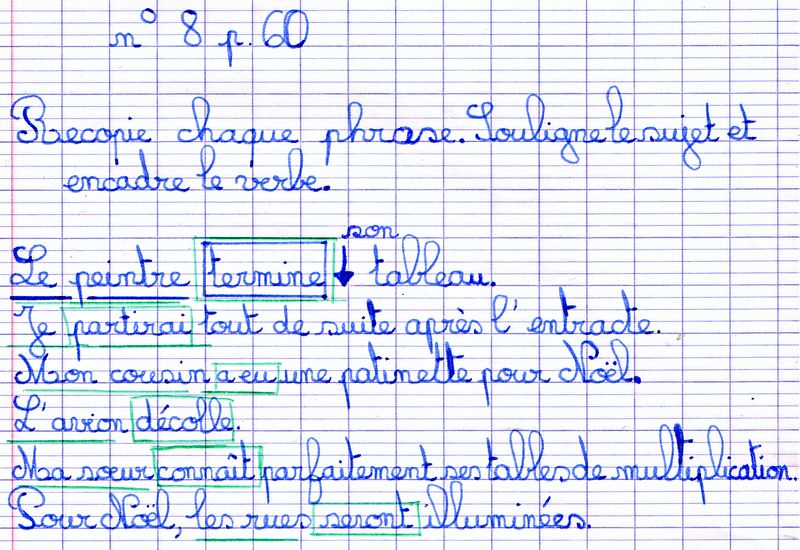 n° 8 p. 60
Recopie chaque phrase. Souligne le sujet et
encadre le verbe.
son
Le peintre termine tableau.
Je partirai tout de suite après l'entracte.
Mon cousin a eu une patinette pour Noël.
L'avion décolle.
Ma sœur connaît parfaitement ses tables de multiplication.
Pour Noël, les rues seront illuminées.